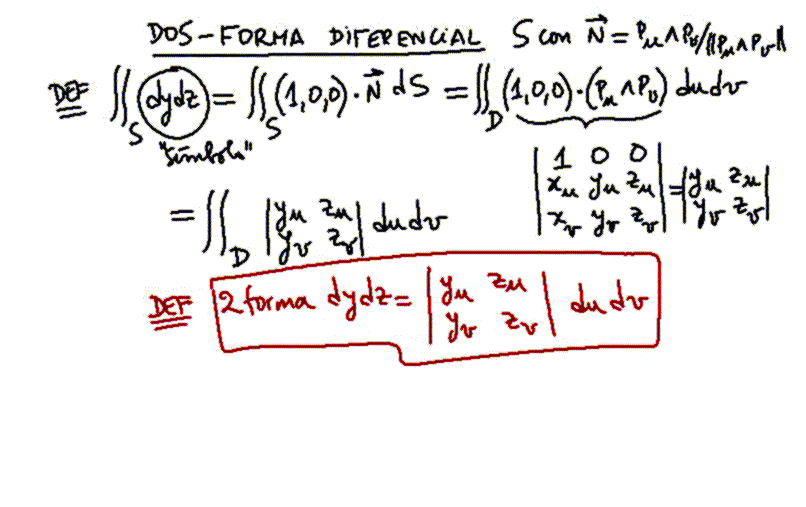 DOS-FORMA DIFERENCIAL S con N⃗ = Pu∧Pv/‖Pu∧Pv‖
DEF ∬_S dydz = ∬_S (1,0,0)·N⃗ dS = ∬_D (1,0,0)·(Pu∧Pv) dudv
"símbolo"
|1 0 0|
|xu yu zu| = |yu zu|
|xv yv zv| |yv zv|
= ∬_D |yu zu| dudv
|yv zv|
DEF 2 forma dydz = |yu zu| du dv
|yv zv|